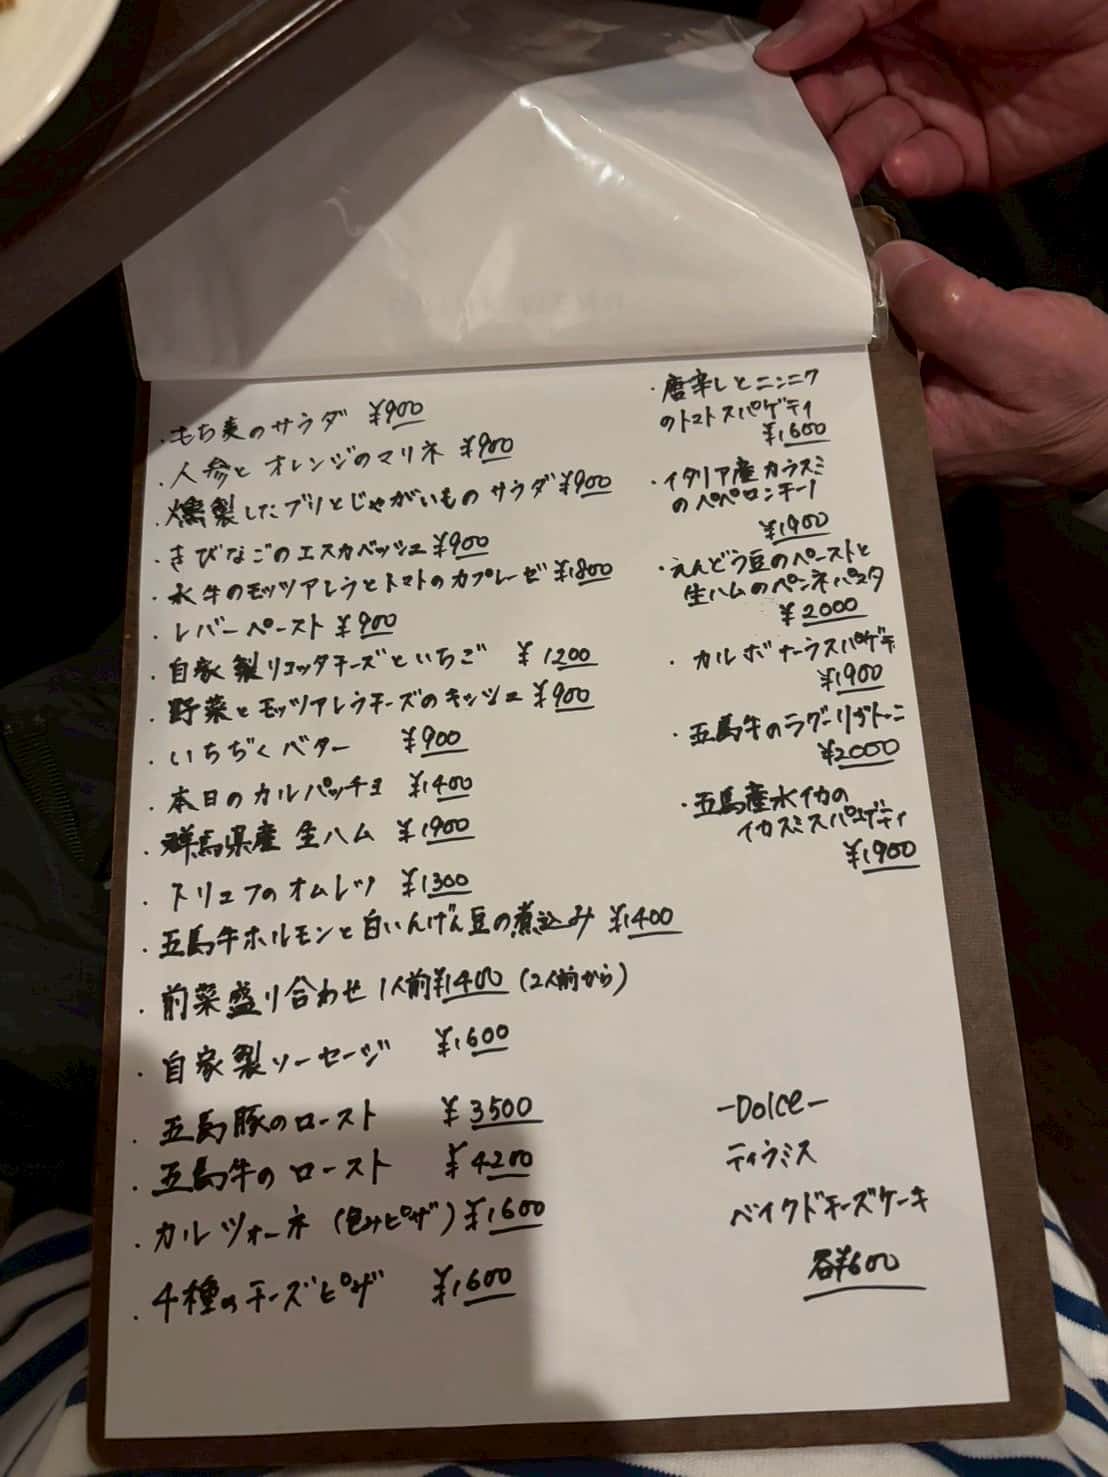 ・もち麦のサラダ ¥900
・人参とオレンジのマリネ ¥900
・燻製したブリとじゃがいものサラダ ¥900
・きびなごのエスカベッシュ ¥900
・水牛のモッツアレラとトマトのカプレーゼ ¥1800
・レバーペースト ¥900
・自家製リコッタチーズといちご ¥1200
・野菜とモッツアレラチーズのキッシュ ¥900
・いちぢくバター ¥900
・本日のカルパッチョ ¥1400
・群馬県産 生ハム ¥1900
・トリュフのオムレツ ¥1300
・五島牛ホルモンと白いんげん豆の煮込み ¥1400
・前菜盛り合わせ 1人前¥1400 (2人前から)
・自家製ソーセージ ¥1600
・五島豚のロースト ¥3500
・五島牛のロースト ¥4200
・カルツォーネ (包みピザ) ¥1600
・4種のチーズピザ ¥1600
・唐辛しとニンニク
のトマトスパゲティ
¥1600
・イタリア産カラスミ
のペペロンチーノ
¥1900
・えんどう豆のペーストと
生ハムのペンネパスタ
¥2000
・カルボナーラスパゲティ
¥1900
・五島牛のラグーリガトーニ
¥2000
・五島産水イカの
イカスミスパゲティ
¥1900
-Dolce-
ティラミス
ベイクドチーズケーキ
各¥600